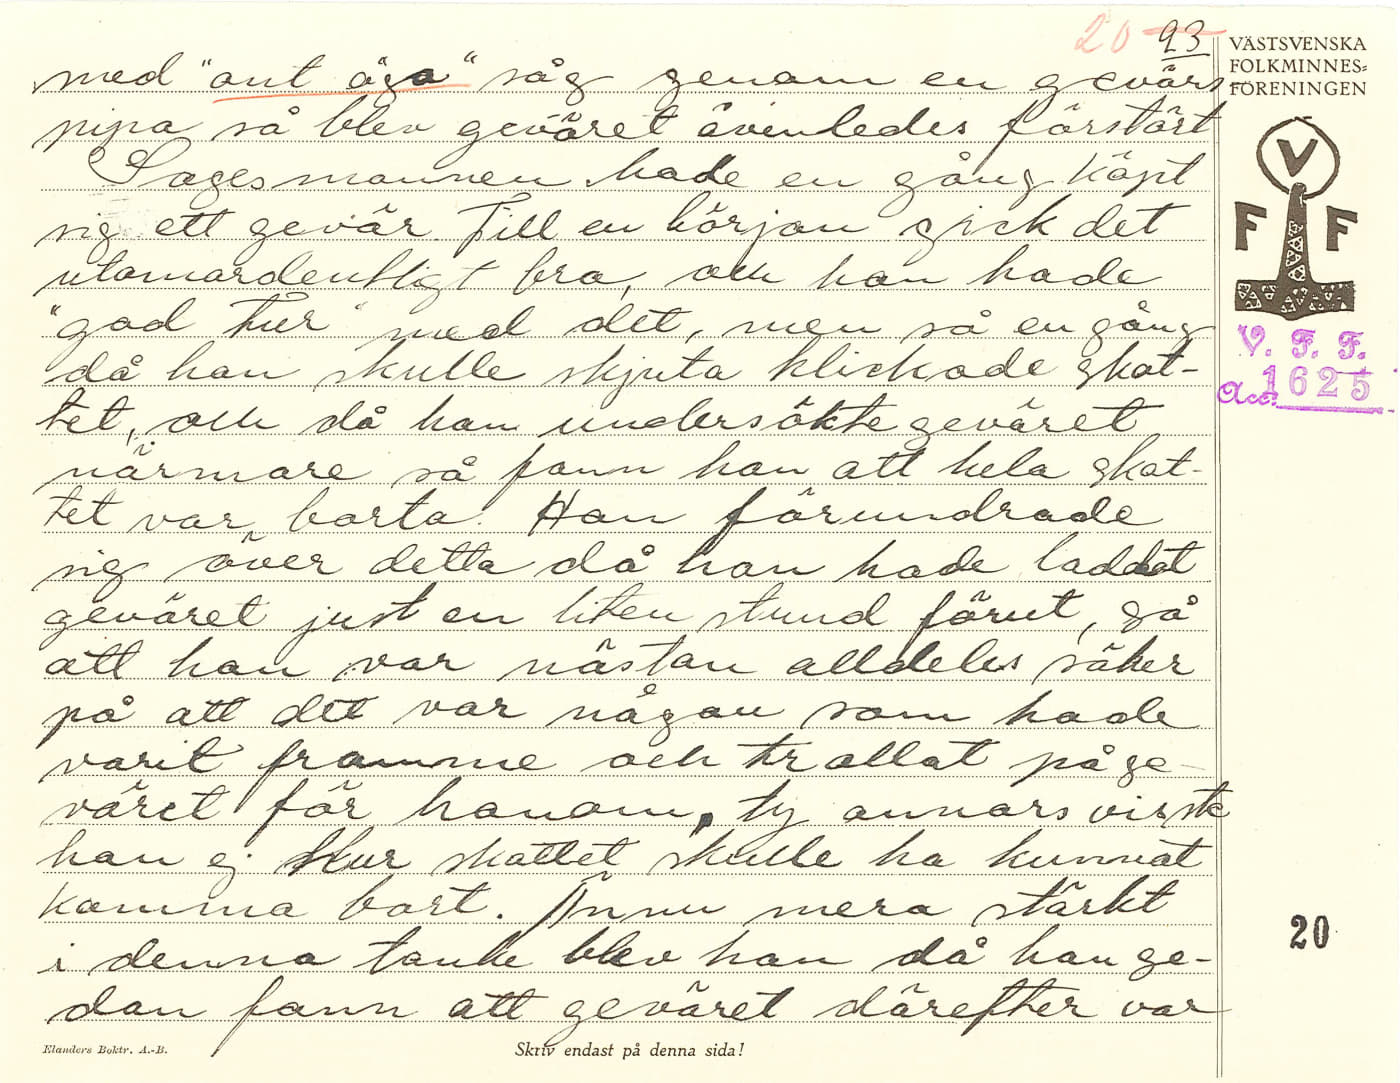 20 23
med "ont öga" såg genom en gevärs-
pipa så blev geväret ävenledes förstört
Sagesmannen hade en gång köpt
sig ett gevär. Till en början gick det
utomordentligt bra, och han hade
"god tur" med det, men så en gång
då han skulle skjuta klickade skot-
tet, och då han undersökte geväret
närmare så fann han att hela skot-
tet var borta. Han förundrade
sig över detta då han hade laddat
geväret just en liten stund förut, så
att han var nästan alldeles säker
på att det var någon som hade
varit framme och trollat på ge-
väret för honom, ty annars visste
han ej hur skottet skulle ha kunnat
komma bort. Ännu mera stärkt
i denna tanke blev han då han se-
dan fann att geväret därefter var
VÄSTSVENSKA
FOLKMINNES-
FÖRENINGEN
V
F F
V. F. F.
Acc. 1625
20
Elanders Boktr. A.-B.
Skriv endast på denna sida!